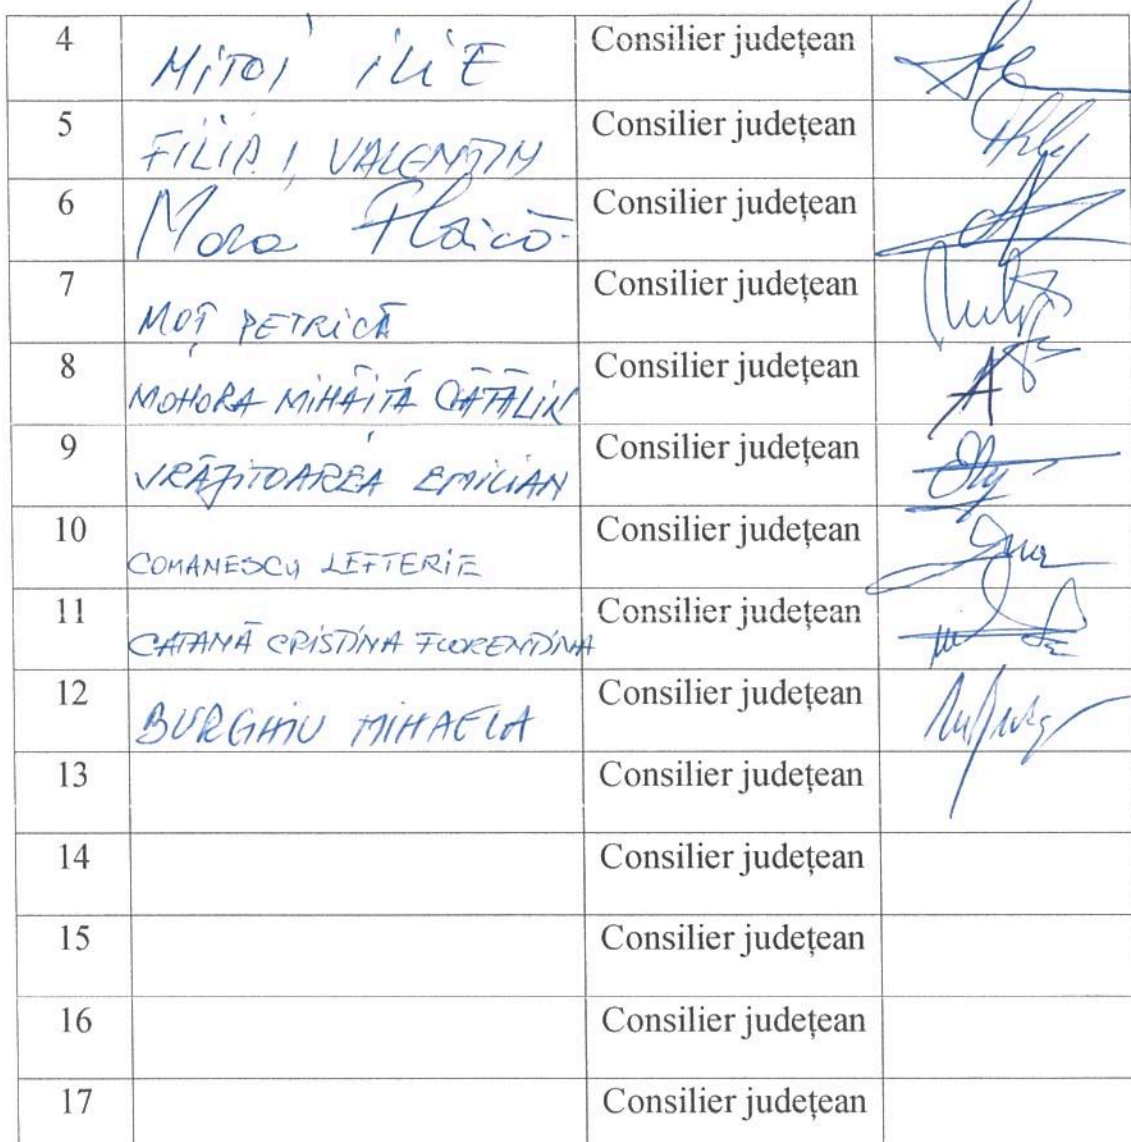 4 MITOI ILIE Consilier județean
5 FILIP I. VALENTIN Consilier județean
6 Mara Consilier județean
7 MOȚ PETRICĂ Consilier județean
8 MOHORA MIHĂIȚĂ CĂTĂLIN Consilier județean
9 VRĂJITOAREA EMILIAN Consilier județean
10 COMANESCU LEFTERIE Consilier județean
11 CATANĂ CRISTINA FLORENTINA Consilier județean
12 BURGHIU MIHAELA Consilier județean
13 Consilier județean
14 Consilier județean
15 Consilier județean
16 Consilier județean
17 Consilier județean